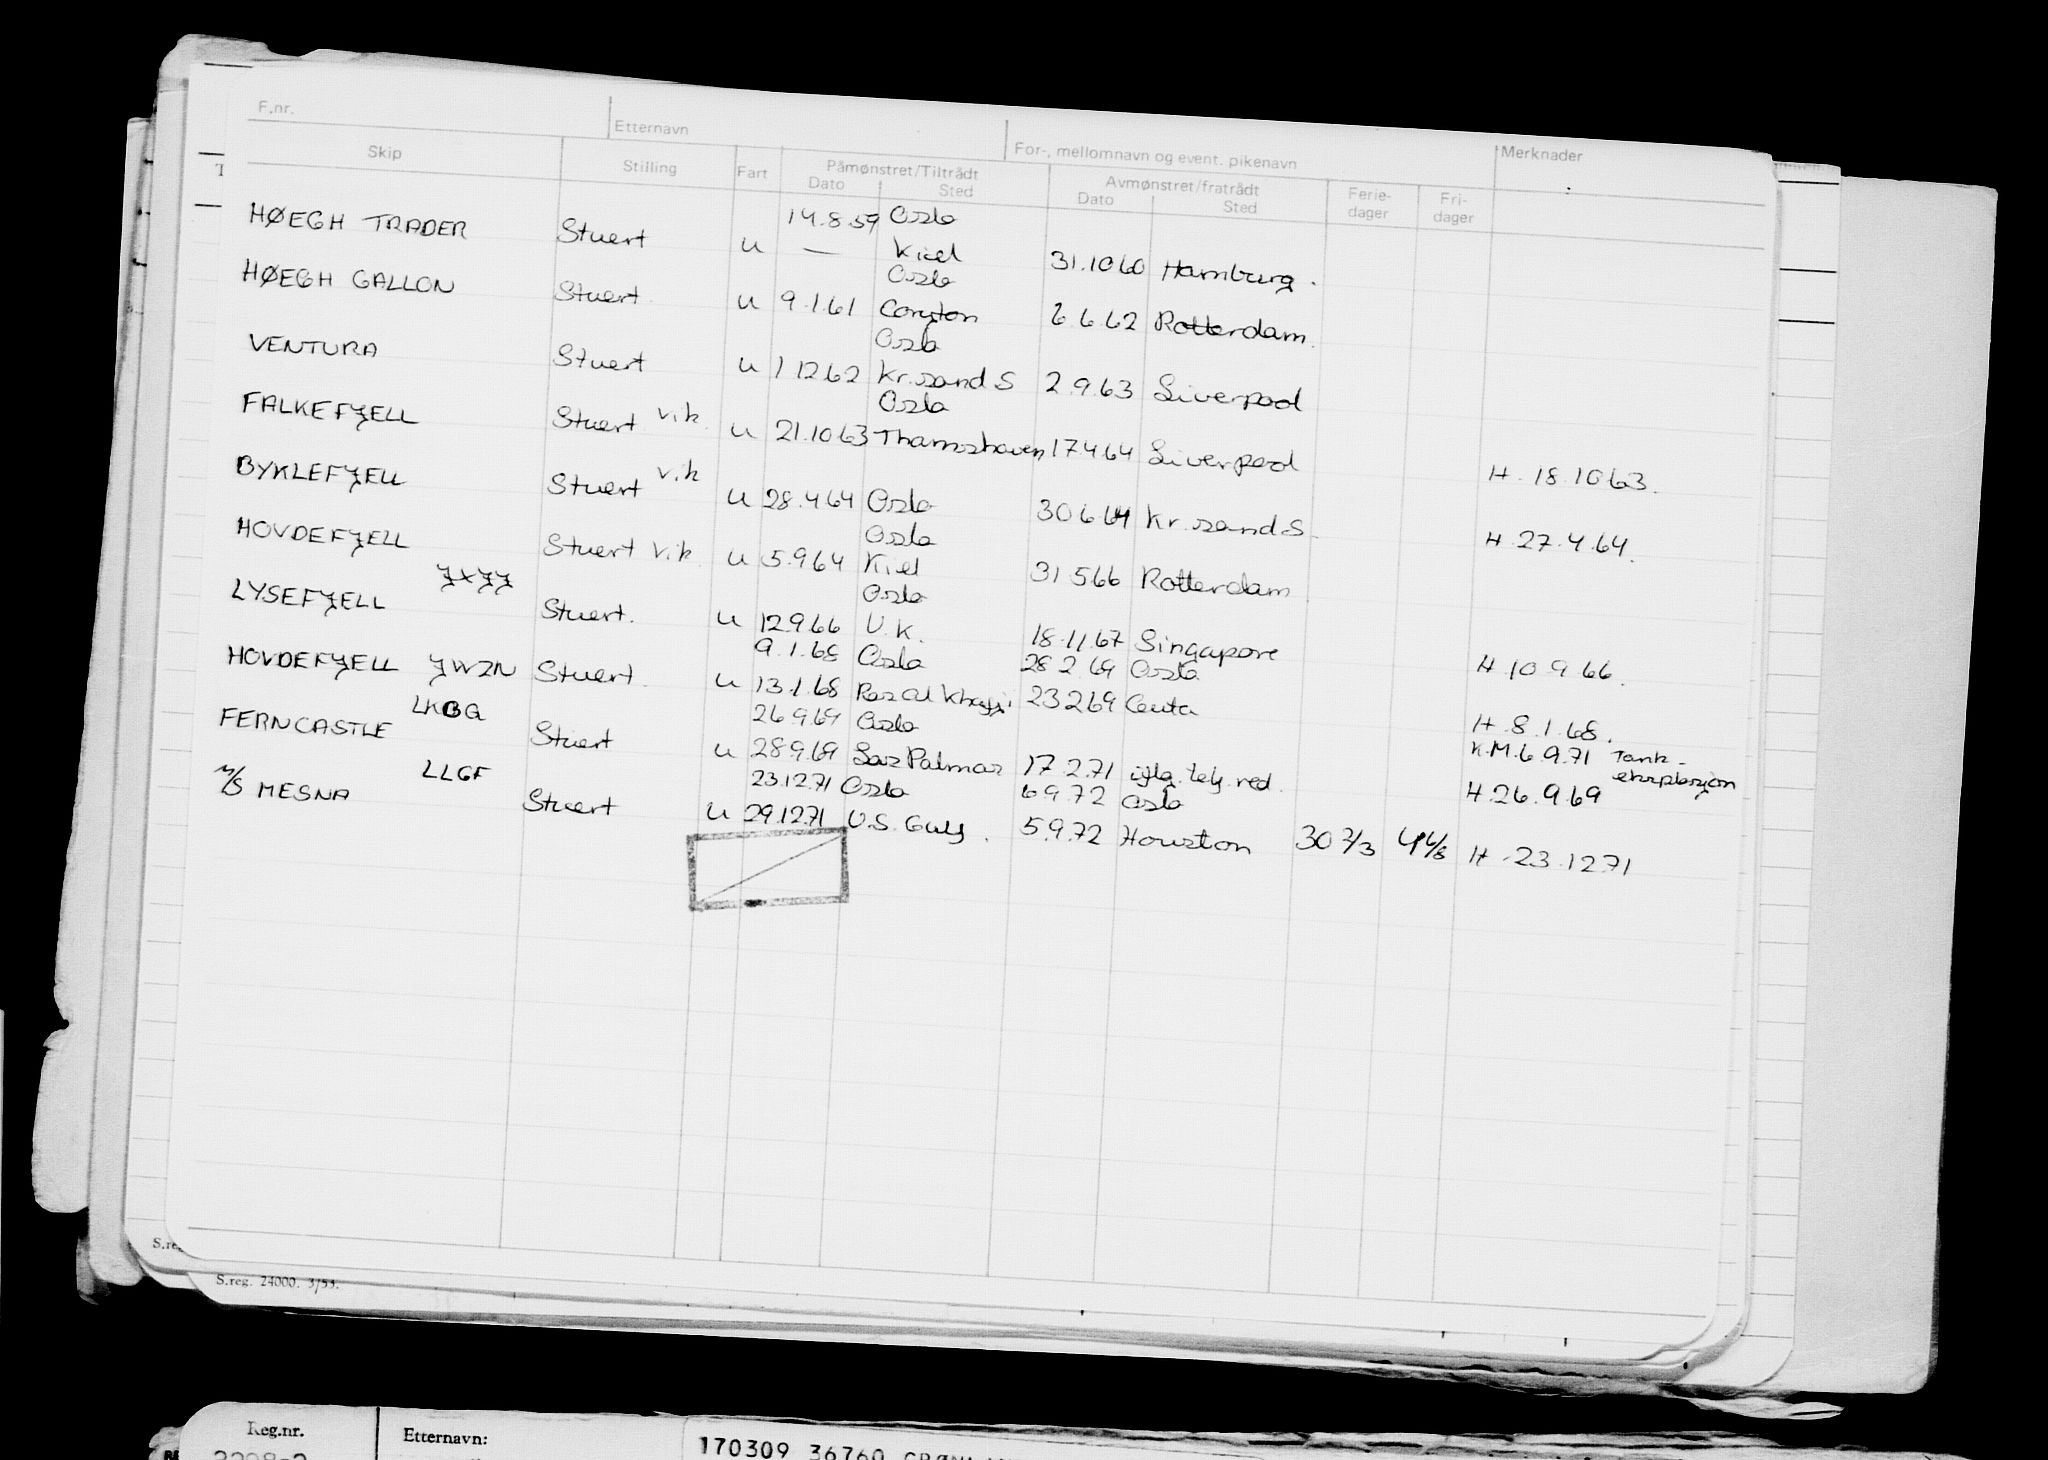 F.nr. Etternavn For-, mellomnavn og event. pikenavn Merknader
Skip Stilling Fart Påmønstret/Tiltrådt Avmønstret/fratrådt Ferie-dager Fri-dager
Dato Sted Dato Sted
14.8.59 Oslo
HØEGH TRADER Stuert u — Kiel 31.10.60 Hamburg.
Oslo
HØEGH GALLON Stuert u 9.1.61 Coryton 6.6.62 Rotterdam.
Oslo
VENTURA Stuert u 1.12.62 Kr.sand S 2.9.63 Liverpool
Oslo
FALKEFJELL Stuert vik. u 21.10.63 Thamshaven 17.4.64 Liverpool H. 18.10.63.
BYKLEFJELL Stuert vik u 28.4.64 Oslo 30.6.64 Kr.sand S. H. 27.4.64.
Oslo
HOVDEFJELL Stuert vik. u 5.9.64 Kiel 31.5.66 Rotterdam
JXJJ Oslo
LYSEFJELL Stuert. u 12.9.66 U.K. 18.11.67 Singapore H 10.9.66.
9.1.68 Oslo 28.2.69 Oslo
HOVDEFJELL JWZN Stuert. u 13.1.68 Ras al Khafji 23.2.69 Ceuta H. 8.1.68.
LKBG 26.9.69 Oslo K.M. 6.9.71 Tank-eksplosjon
FERNCASTLE Stuert u 28.9.69 Las Palmas 17.2.71 iflg. telg. red. H. 26.9.69
LLGF 23.12.71 Oslo 6.9.72 Oslo
M/S MESNA Stuert u 29.12.71 U.S. Gulf. 5.9.72 Houston 30 2/3 H. 23.12.71
S.reg. 24000. 3/53.
Reg.nr. Etternavn: 170309 36760